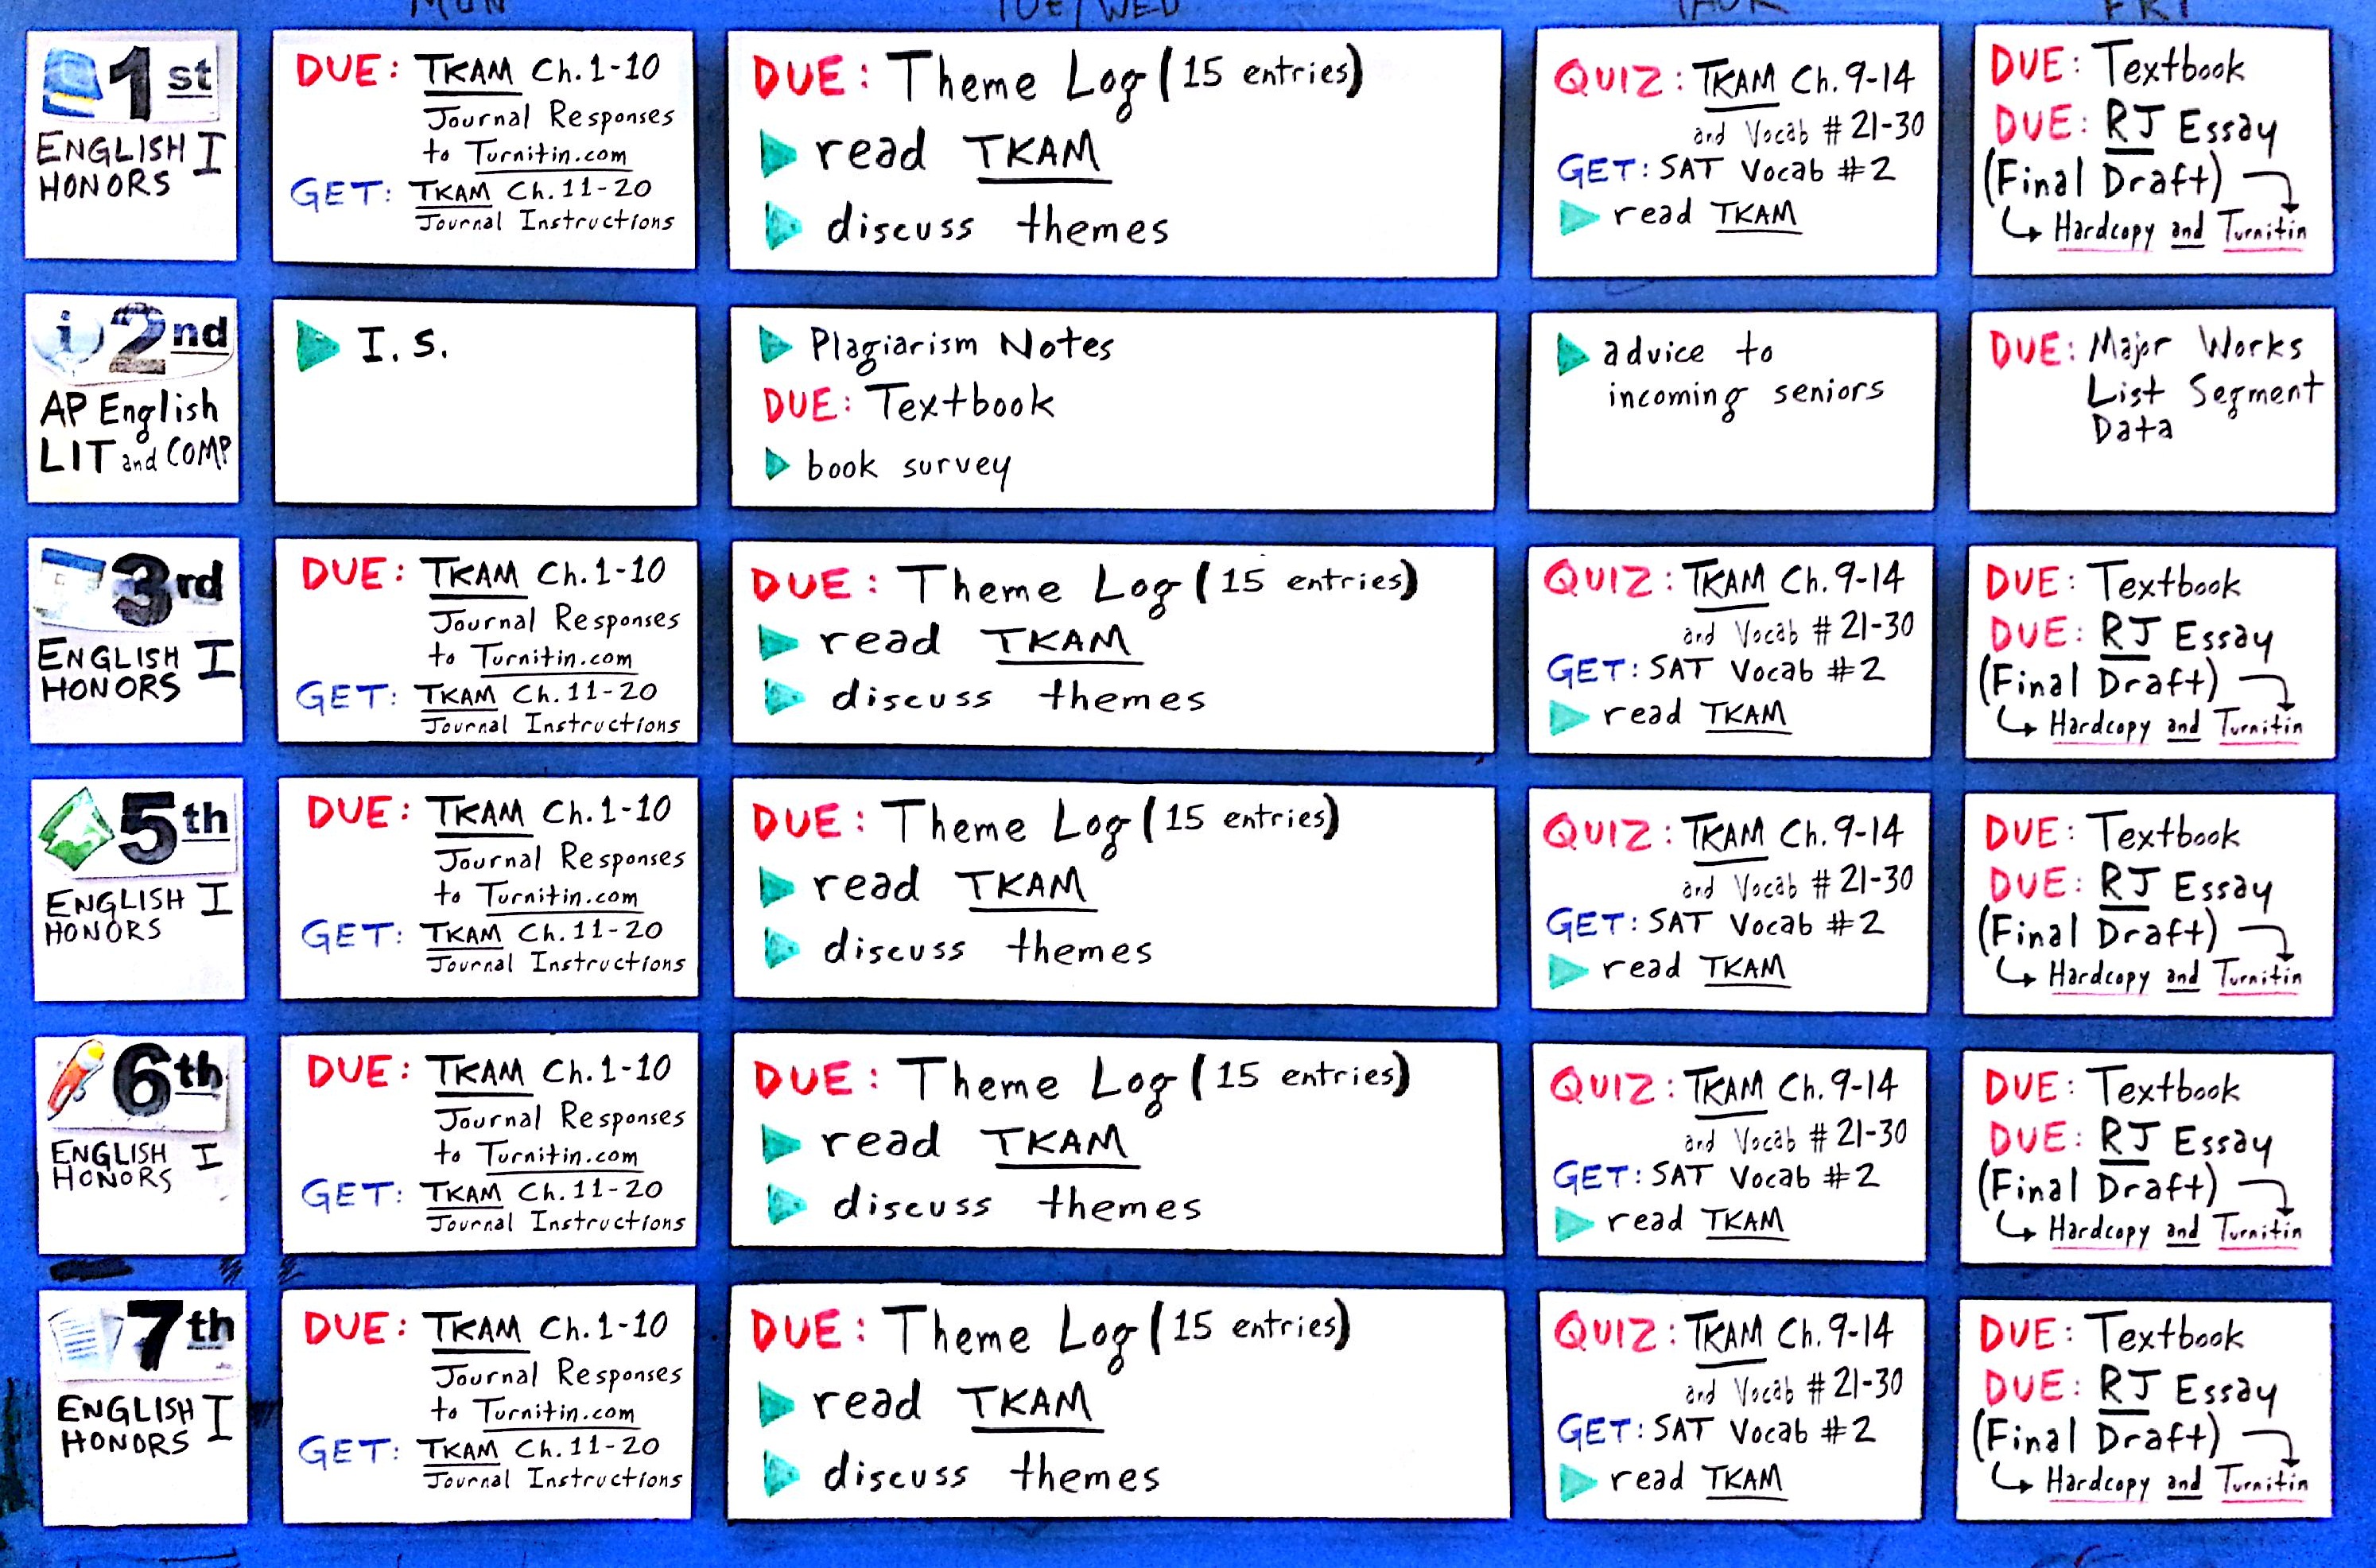 MON
TUE/WED
THUR
FRI
1st
ENGLISH I
HONORS
DUE: TKAM Ch. 1-10
Journal Responses
to Turnitin.com
GET: TKAM Ch. 11-20
Journal Instructions
DUE: Theme Log (15 entries)
read TKAM
discuss themes
QUIZ: TKAM Ch. 9-14
and Vocab # 21-30
GET: SAT Vocab #2
read TKAM
DUE: Textbook
DUE: RJ Essay
(Final Draft)
Hardcopy and Turnitin
i 2nd
AP English
LIT and COMP
I. S.
Plagiarism Notes
DUE: Textbook
book survey
advice to
incoming seniors
DUE: Major Works
List Segment
Data
3rd
ENGLISH I
HONORS
DUE: TKAM Ch. 1-10
Journal Responses
to Turnitin.com
GET: TKAM Ch. 11-20
Journal Instructions
DUE: Theme Log (15 entries)
read TKAM
discuss themes
QUIZ: TKAM Ch. 9-14
and Vocab # 21-30
GET: SAT Vocab #2
read TKAM
DUE: Textbook
DUE: RJ Essay
(Final Draft)
Hardcopy and Turnitin
5th
ENGLISH I
HONORS
DUE: TKAM Ch. 1-10
Journal Responses
to Turnitin.com
GET: TKAM Ch. 11-20
Journal Instructions
DUE: Theme Log (15 entries)
read TKAM
discuss themes
QUIZ: TKAM Ch. 9-14
and Vocab # 21-30
GET: SAT Vocab #2
read TKAM
DUE: Textbook
DUE: RJ Essay
(Final Draft)
Hardcopy and Turnitin
6th
ENGLISH I
HONORS
DUE: TKAM Ch. 1-10
Journal Responses
to Turnitin.com
GET: TKAM Ch. 11-20
Journal Instructions
DUE: Theme Log (15 entries)
read TKAM
discuss themes
QUIZ: TKAM Ch. 9-14
and Vocab # 21-30
GET: SAT Vocab #2
read TKAM
DUE: Textbook
DUE: RJ Essay
(Final Draft)
Hardcopy and Turnitin
7th
ENGLISH I
HONORS
DUE: TKAM Ch. 1-10
Journal Responses
to Turnitin.com
GET: TKAM Ch. 11-20
Journal Instructions
DUE: Theme Log (15 entries)
read TKAM
discuss themes
QUIZ: TKAM Ch. 9-14
and Vocab # 21-30
GET: SAT Vocab #2
read TKAM
DUE: Textbook
DUE: RJ Essay
(Final Draft)
Hardcopy and Turnitin